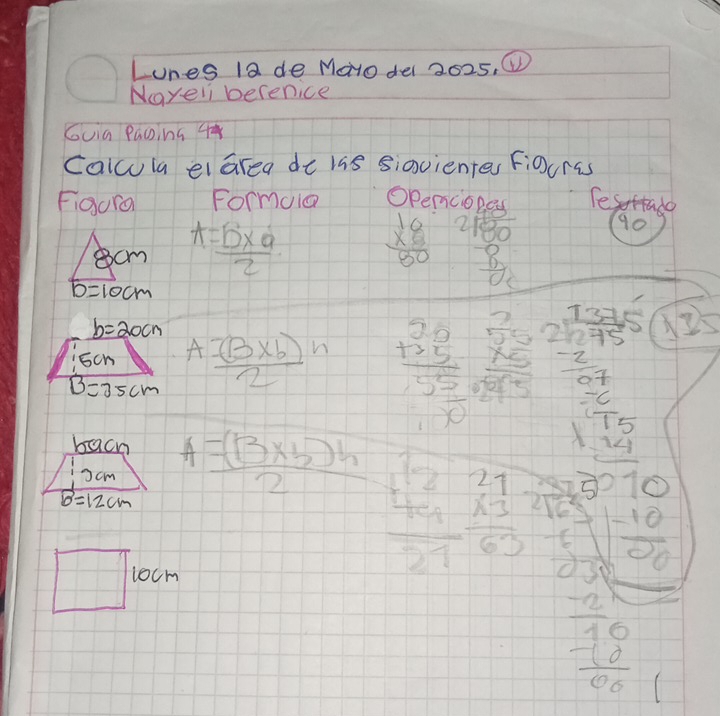 Lunes 12 de Mayo del 2025.
Nayeli berenice
Guia Pagina
Calcula el área de las siguientes Figuras
Figura Formula Operaciones resultado
8cm
b=10cm
A=bxa
2
10
x8
80
2 80
8
40
b=20cm
5cm
B=35cm
A=(Bxb)h
2
20
+35
55
55
x5
275
137.5
2 275
-2
07
-6
15
14
10
-10
00
b=9cm
3cm
B=12cm
A=(Bxb)h
2
12
21
21
x3
63
03
-2
10
-10
00
10cm